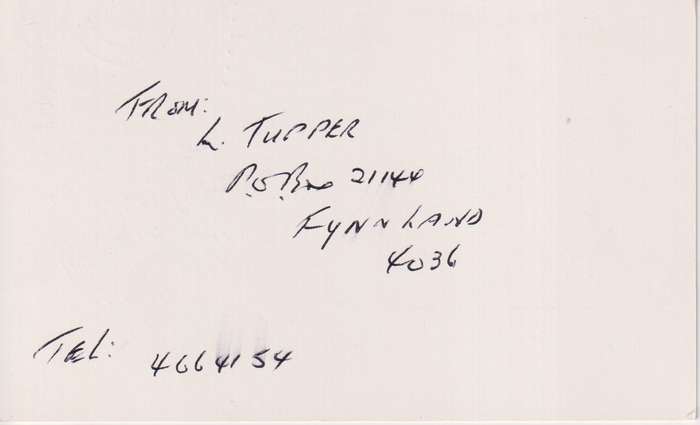 FROM:
L. TUPPER
P.O. Box 21144
FYNNLAND
4036
TEL: 4664154